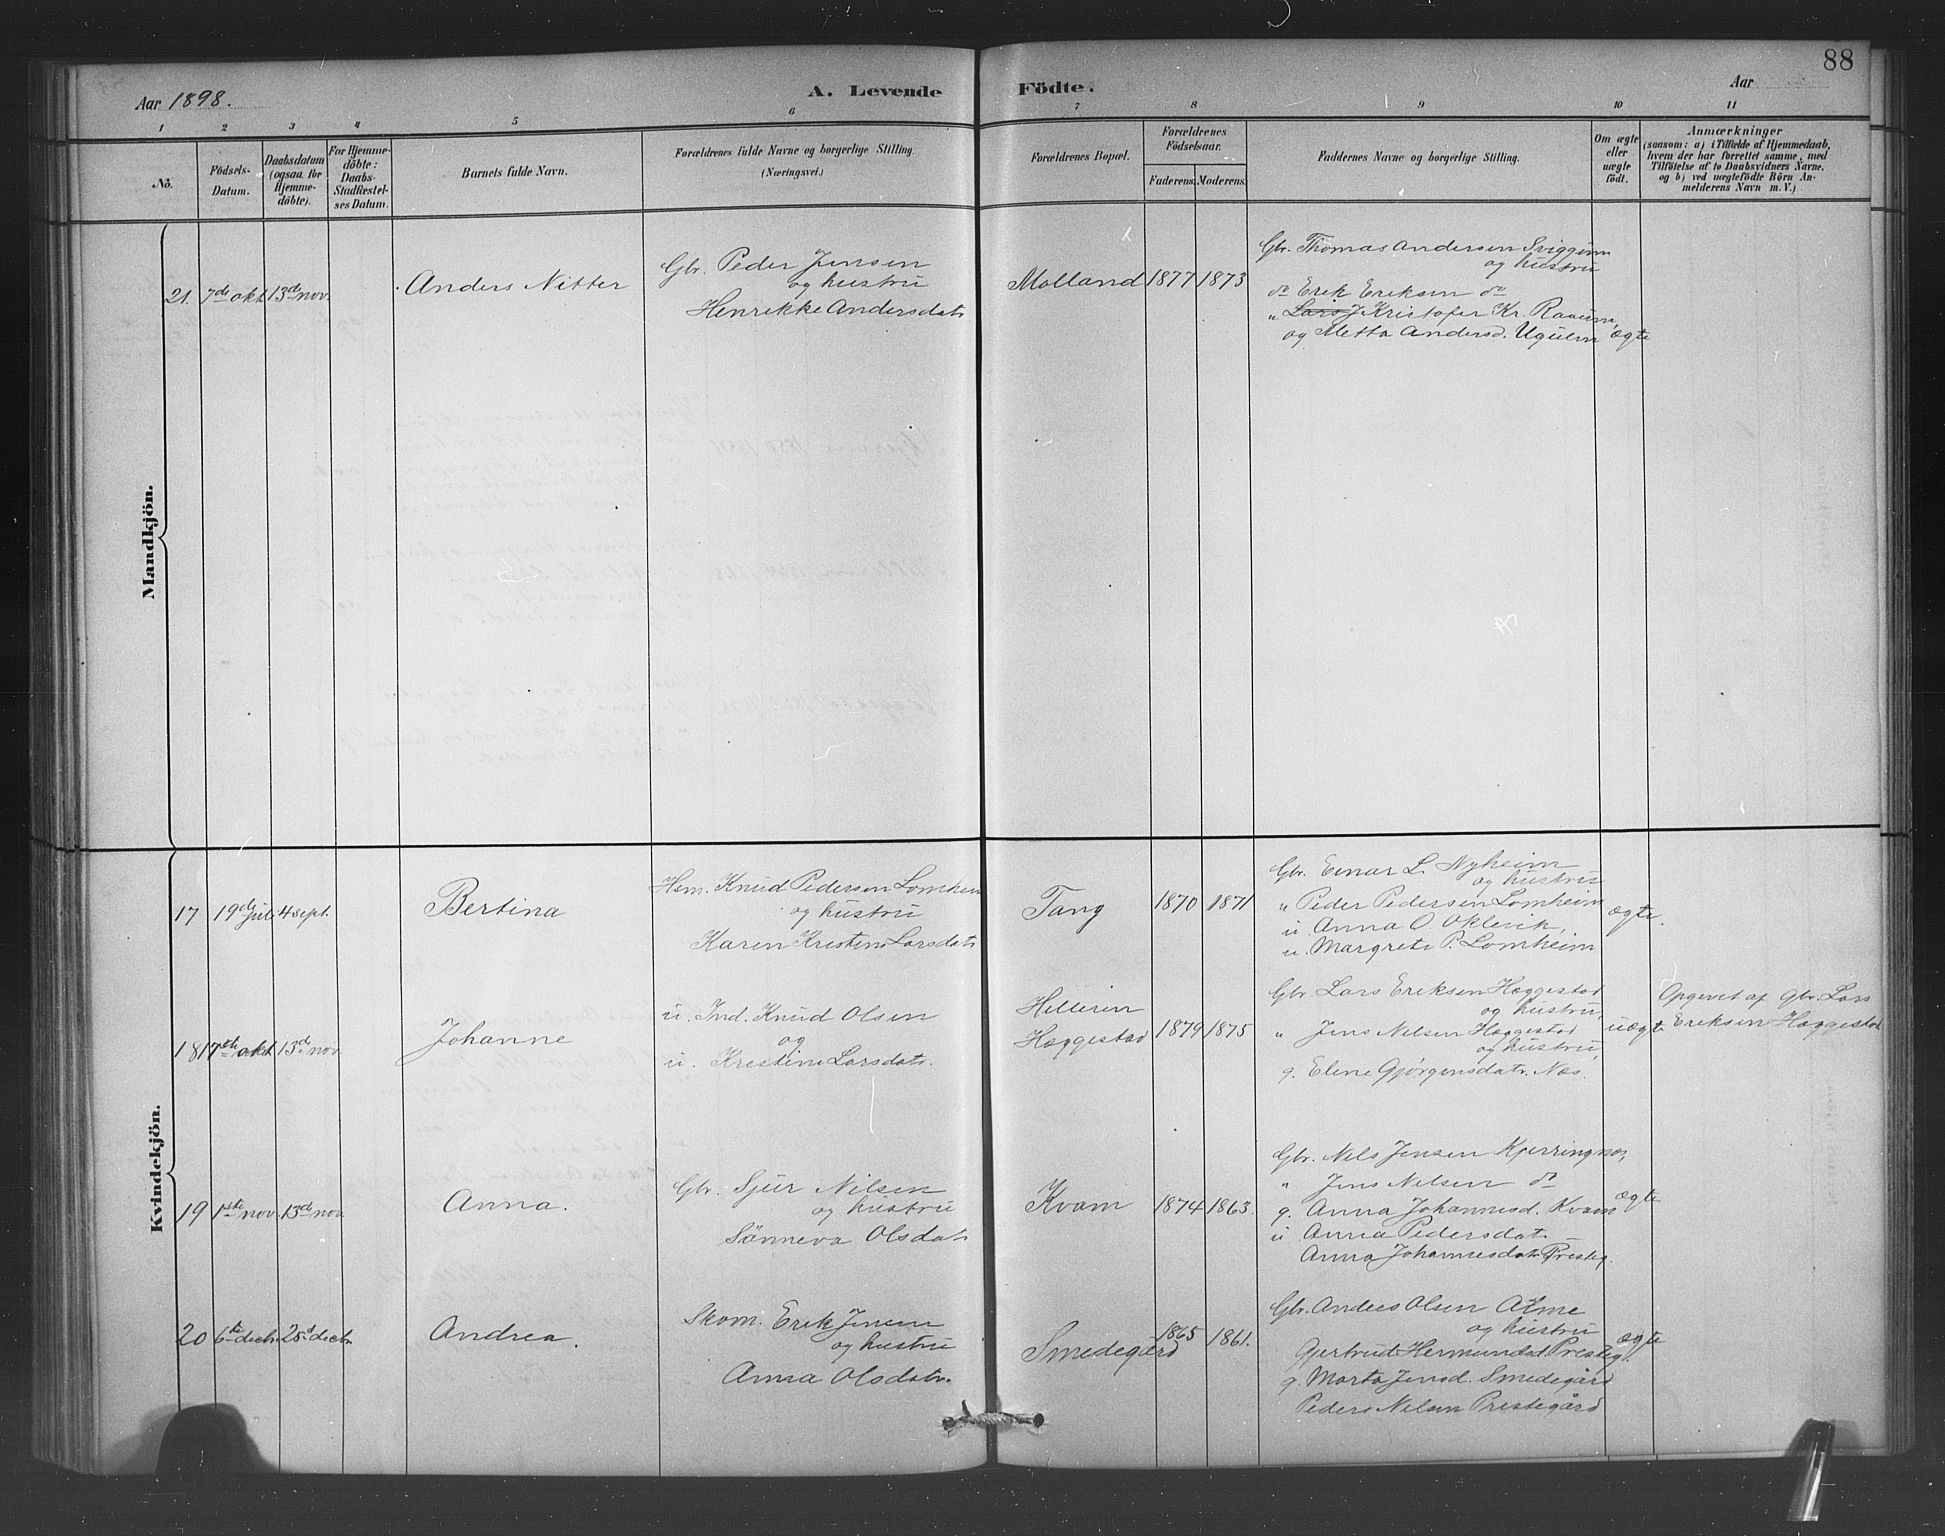 88
Aar 1898.
A. Levende Födte.
Aar
1 2 3 4 5 6 7 8 9 10 11
No.
Födsels-Datum.
Daabsdatum (ogsaa for Hjemme-döbte).
For Hjemme-döbte: Daabs-Stadfæstel-ses Datum.
Barnets fulde Navn.
Forældrenes fulde Navne og borgerlige Stilling.
(Næringsvei.)
Forældrenes Bopæl.
Forældrenes Födselsaar.
Faderens. Moderens.
Faddernes Navne og borgerlige Stilling.
Om ægte eller uægte födt.
Anmærkninger
(saasom: a) i Tilfælde af Hjemmedaab,
hvem der har forrettet samme, med
Tilföielse af to Daabsvidners Navne.
og b) ved uægtefödte Börn An-
melderens Navn m. V.)
Mandkjön.
21. 7de okt. 13de nov.
Anders Nitter
Gbr. Peder Jensen
og hustru
Henrikke Andersdatr
Molland 1877 1873
Gbr. Thomas Andersen
og hustru
do Erik Eriksen do
" Lars J Kristofer Kr.
og Metta Andersd. Ugulen
ægte
Kvindekjön.
17 19de juli 4 sept.
Bertina
Hsm. Knud Pedersen Lomheim
og hustru
Karen Kristine Larsdatr
Tang 1870 1871
Gbr. Einar L. Nyheim
og hustru
" Peder Pedersen Lomheim
u. Anna O. Oklevik,
u. Margrete P. Lomheim
ægte.
18 17de okt. 13de nov.
Johanne
u. Ind. Knud Olsen
og
u. Kristine Larsdatr.
Helleren
Hæggestad 1879 1875
Gbr. Lars Eriksen Hæggestad
og hustru,
" Jens Nilsen Hæggestad
og hustru,
g. Elene Gjørgensdatr. Næs.
uægte
Opgivet af Gbr. Lars
Eriksen Hæggestad
19 1ste nov. 13de nov.
Anna.
Gbr. Sjur Nilsen
og hustru
Sønneva Olsdatr
Kvam 1874 1863.
Gbr. Nils Jensen Kjerringnes,
" Jens Nilsen do
g. Anna Johannesd. Kvam
u Anna Pedersdatr
Anna Johannesdatr Presteg.
ægte
20 6te decbr. 25d decbr.
Andrea.
Skom. Erik Jensen
og hustru
Anna Olsdatr.
Smedegård 1865 1861.
Gbr. Anders Olsen Alme
og hustru
Gjertrud Hermundsd Presteg.
g. Marta Jensd. Smedegård
Peder Nilsen Prestegård
ægte